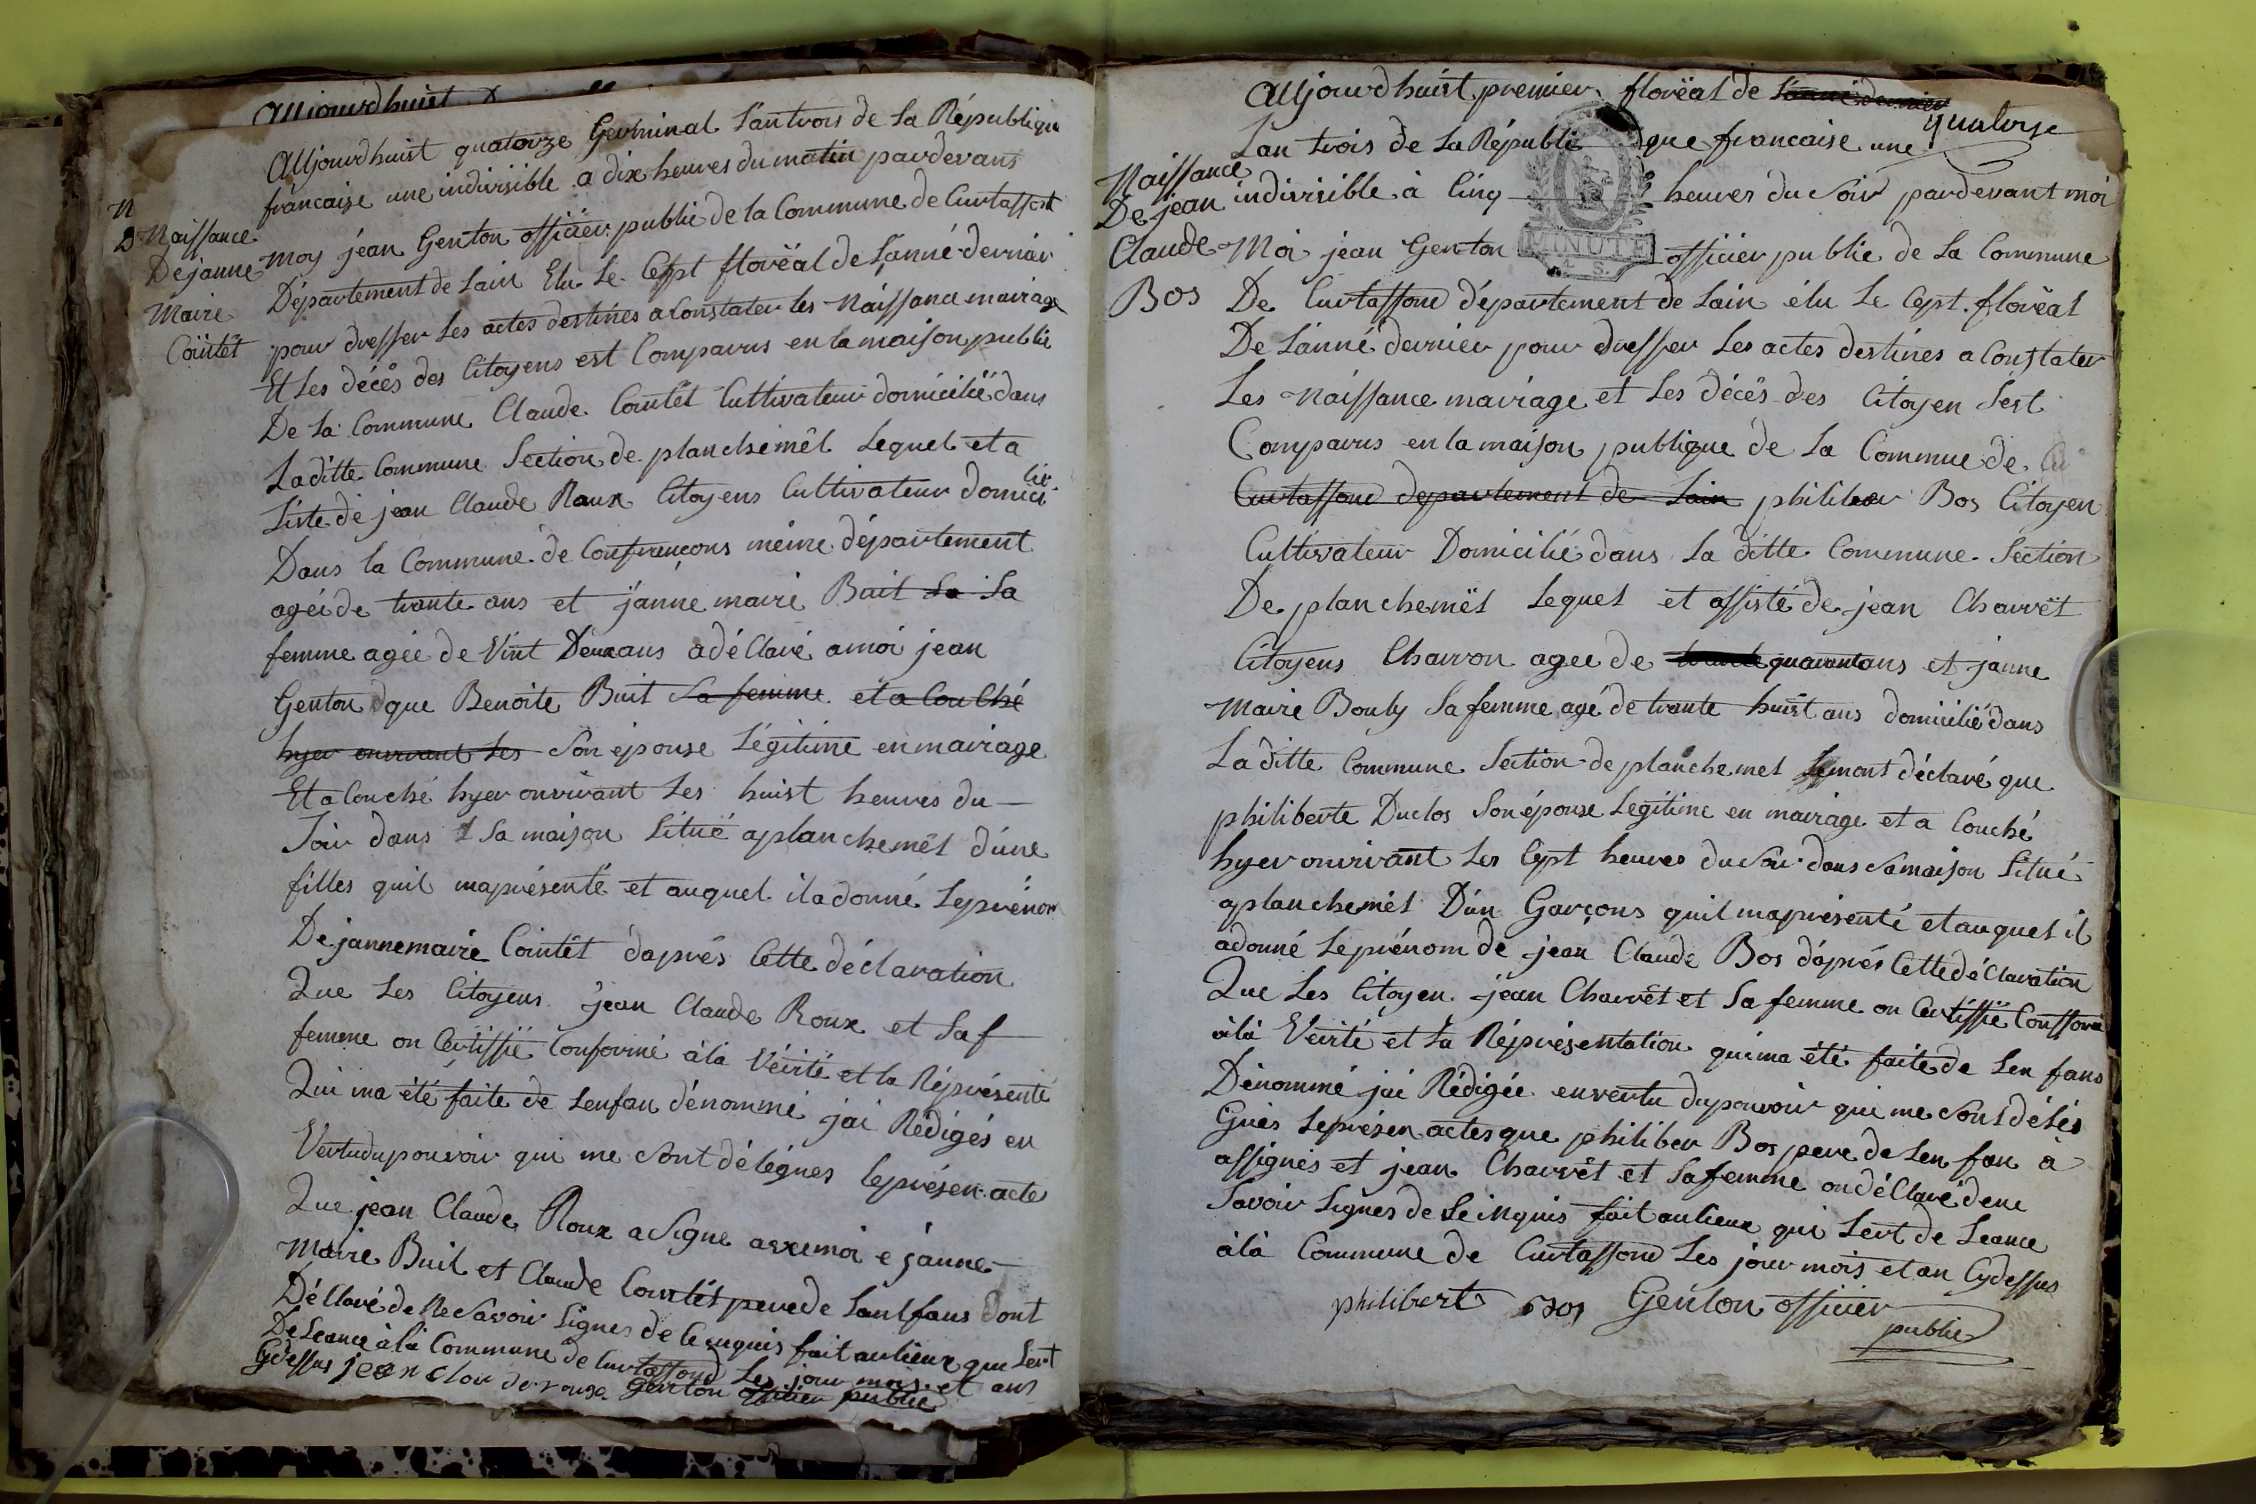 Aujourdhuist
Aujourdhuist quatorze Germinal Lantrois de La Républiqu
francaise une indivisible a dix heures du matin pardevans
N
D Naissance
De janne
Maire
Cointêt
moy jean Genton officier public de la Commune de Curtaffont
Département de Lain Elu Le Cept florëal de Lanné dernier
pour dresser Les actes destinés a Constater les Naissance mairiage
Et Les décés des Citoyens est Comparus en la maison public
De La Commune Claude Cointêt Cultivateur domiciliè dans
La ditte Commune Section de planchemêl Lequel et a
Liste de jean Claude Roux Citoyens Cultivateur domici lie
Dans la Commune de Confrençons même département
agée de trante ans et janne maire Buit La Sa
femme agée de Vint Deux ans a déClaré a moi jean
Genton que Benoite Buit Sa femme et a Couché
hyer onvirant Les Son épouse Légitime en mairiage
Et a Couché hyer onvirant Les huist heures du
Soir dans Sa maison Situé aplanchemêl dúne
filles quil maprésenté et auquel il adonné Leprénom
De jannemaire Cointêt daprés Cette déclaration
Que Les Citoyens jean Claude Roux et Sa f
femme on Certiffié Conformé àla Vérité et la Répresenté
Qui ma été faite de Lenfan dénommé jai Rédigés en
Vertudupouvoir qui me Sont délégues leprésen acte
Que jean Claude Roux a Signe avxemoi e janne
Maire Buit et Claude Cointêt perede Lanlfans dont
DéClaré de Ne Savoir Signes de Ce enquis fait aulieux que Sert
De Seance àla Commune de Curtaffond Les jour mois et ans
Cydessus jean clau de roux Genton officier public
Aujourdhuist premier florëal de Lanné dernier
quatorze
Lan trois de La Républi que francaise une
Naissance
De jean
Claude
Bos
indivisible à Cinq heures du Soir pardevant moi
MINUTE
Moi jean Genton officier public de La Commune
De Curtaffond département de Lain élu Le Cept florëal
De Lánné dernier pour dresser Les actes destines a Constater
Les Naissance mairiage et Les décés des Citoyen Sest
Comparus en la maison publique de La Commue de Cu
Curtaffond departement de Lain philiber Bos Citoyen
Cultivateur Domicilié dans La ditte Commune Section
De planchemêl Lequel et assisté de jean Charvêt
Citoyens Charron agee de quarantans et janne
Maire Bouly Sa femme agé de trante huist ans domicilié dans
La ditte Commune Section de planchemel mont déclaré que
philiberte Duclos Son épouse Legitime en mairiage et a Couché
hyer onvirant Les Cept heures du Soir dans Sa maison Situé
aplanchemêl Dún Garçons quil maprésenté etauquel il
adonné Leprénom de jean Claude Bos dáprés Cette déClaration
Que Les Citoyen jean Charvêt et Sa femme on Certiffié Conforme
àla Vérité et La Réprésentation qui ma été faite de Len fans
Dénommé jai Rédigée en vertu du pouvoir qui me Sont délés
Gués Leprésen actes que philiber Bos pere de Len fan a
assignés et jean Charvêt et Sa femme on déClaré dene
Savoir Signes de Ce inquis fait aulieux qui Sert de Seance
àla Commune de Curtaffond Les jour mois et an Cydessus
philibert Bos Genton officier
public